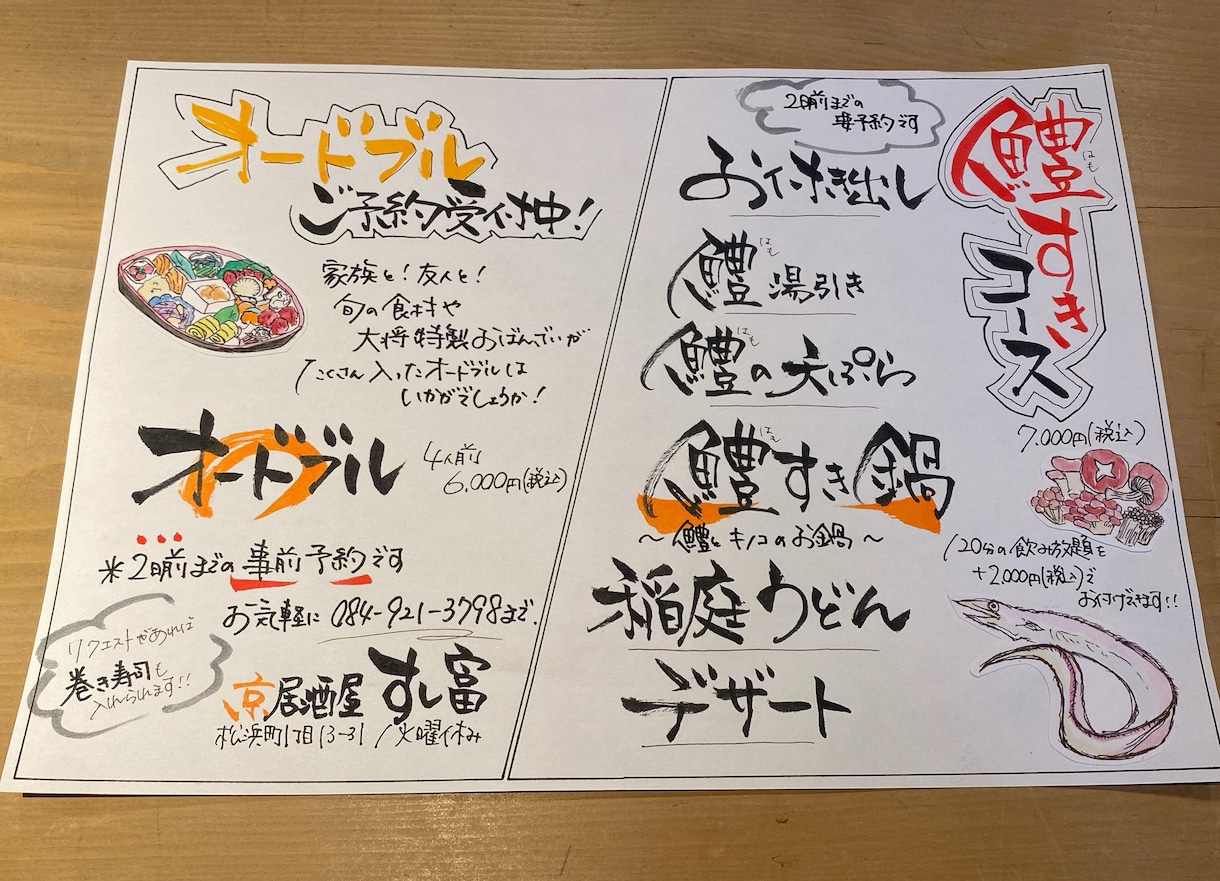 オードブル
ご予約受付中!
家族と!友人と!
旬の食材や
大将特製おばんざいが
たくさん入ったオードブルは
いかがでしょうか!
オードブル
4人前
6,000円(税込)
*2日前までの事前予約です
お気軽に 084-921-3798まで.
リクエストがあれば
巻き寿司も
入れられます!!
京居酒屋 すし富
松浜町1丁目13-31 / 火曜休み
鱧すき
はも
コース
2日前までの
要予約です
お付き出し
鱧 湯引き
はも
鱧の天ぷら
はも
鱧すき鍋
はも
〜鱧とキノコのお鍋〜
稲庭うどん
デザート
7,000円(税込)
120分の飲み放題を
+2,000円(税込)で
お付けできます!!